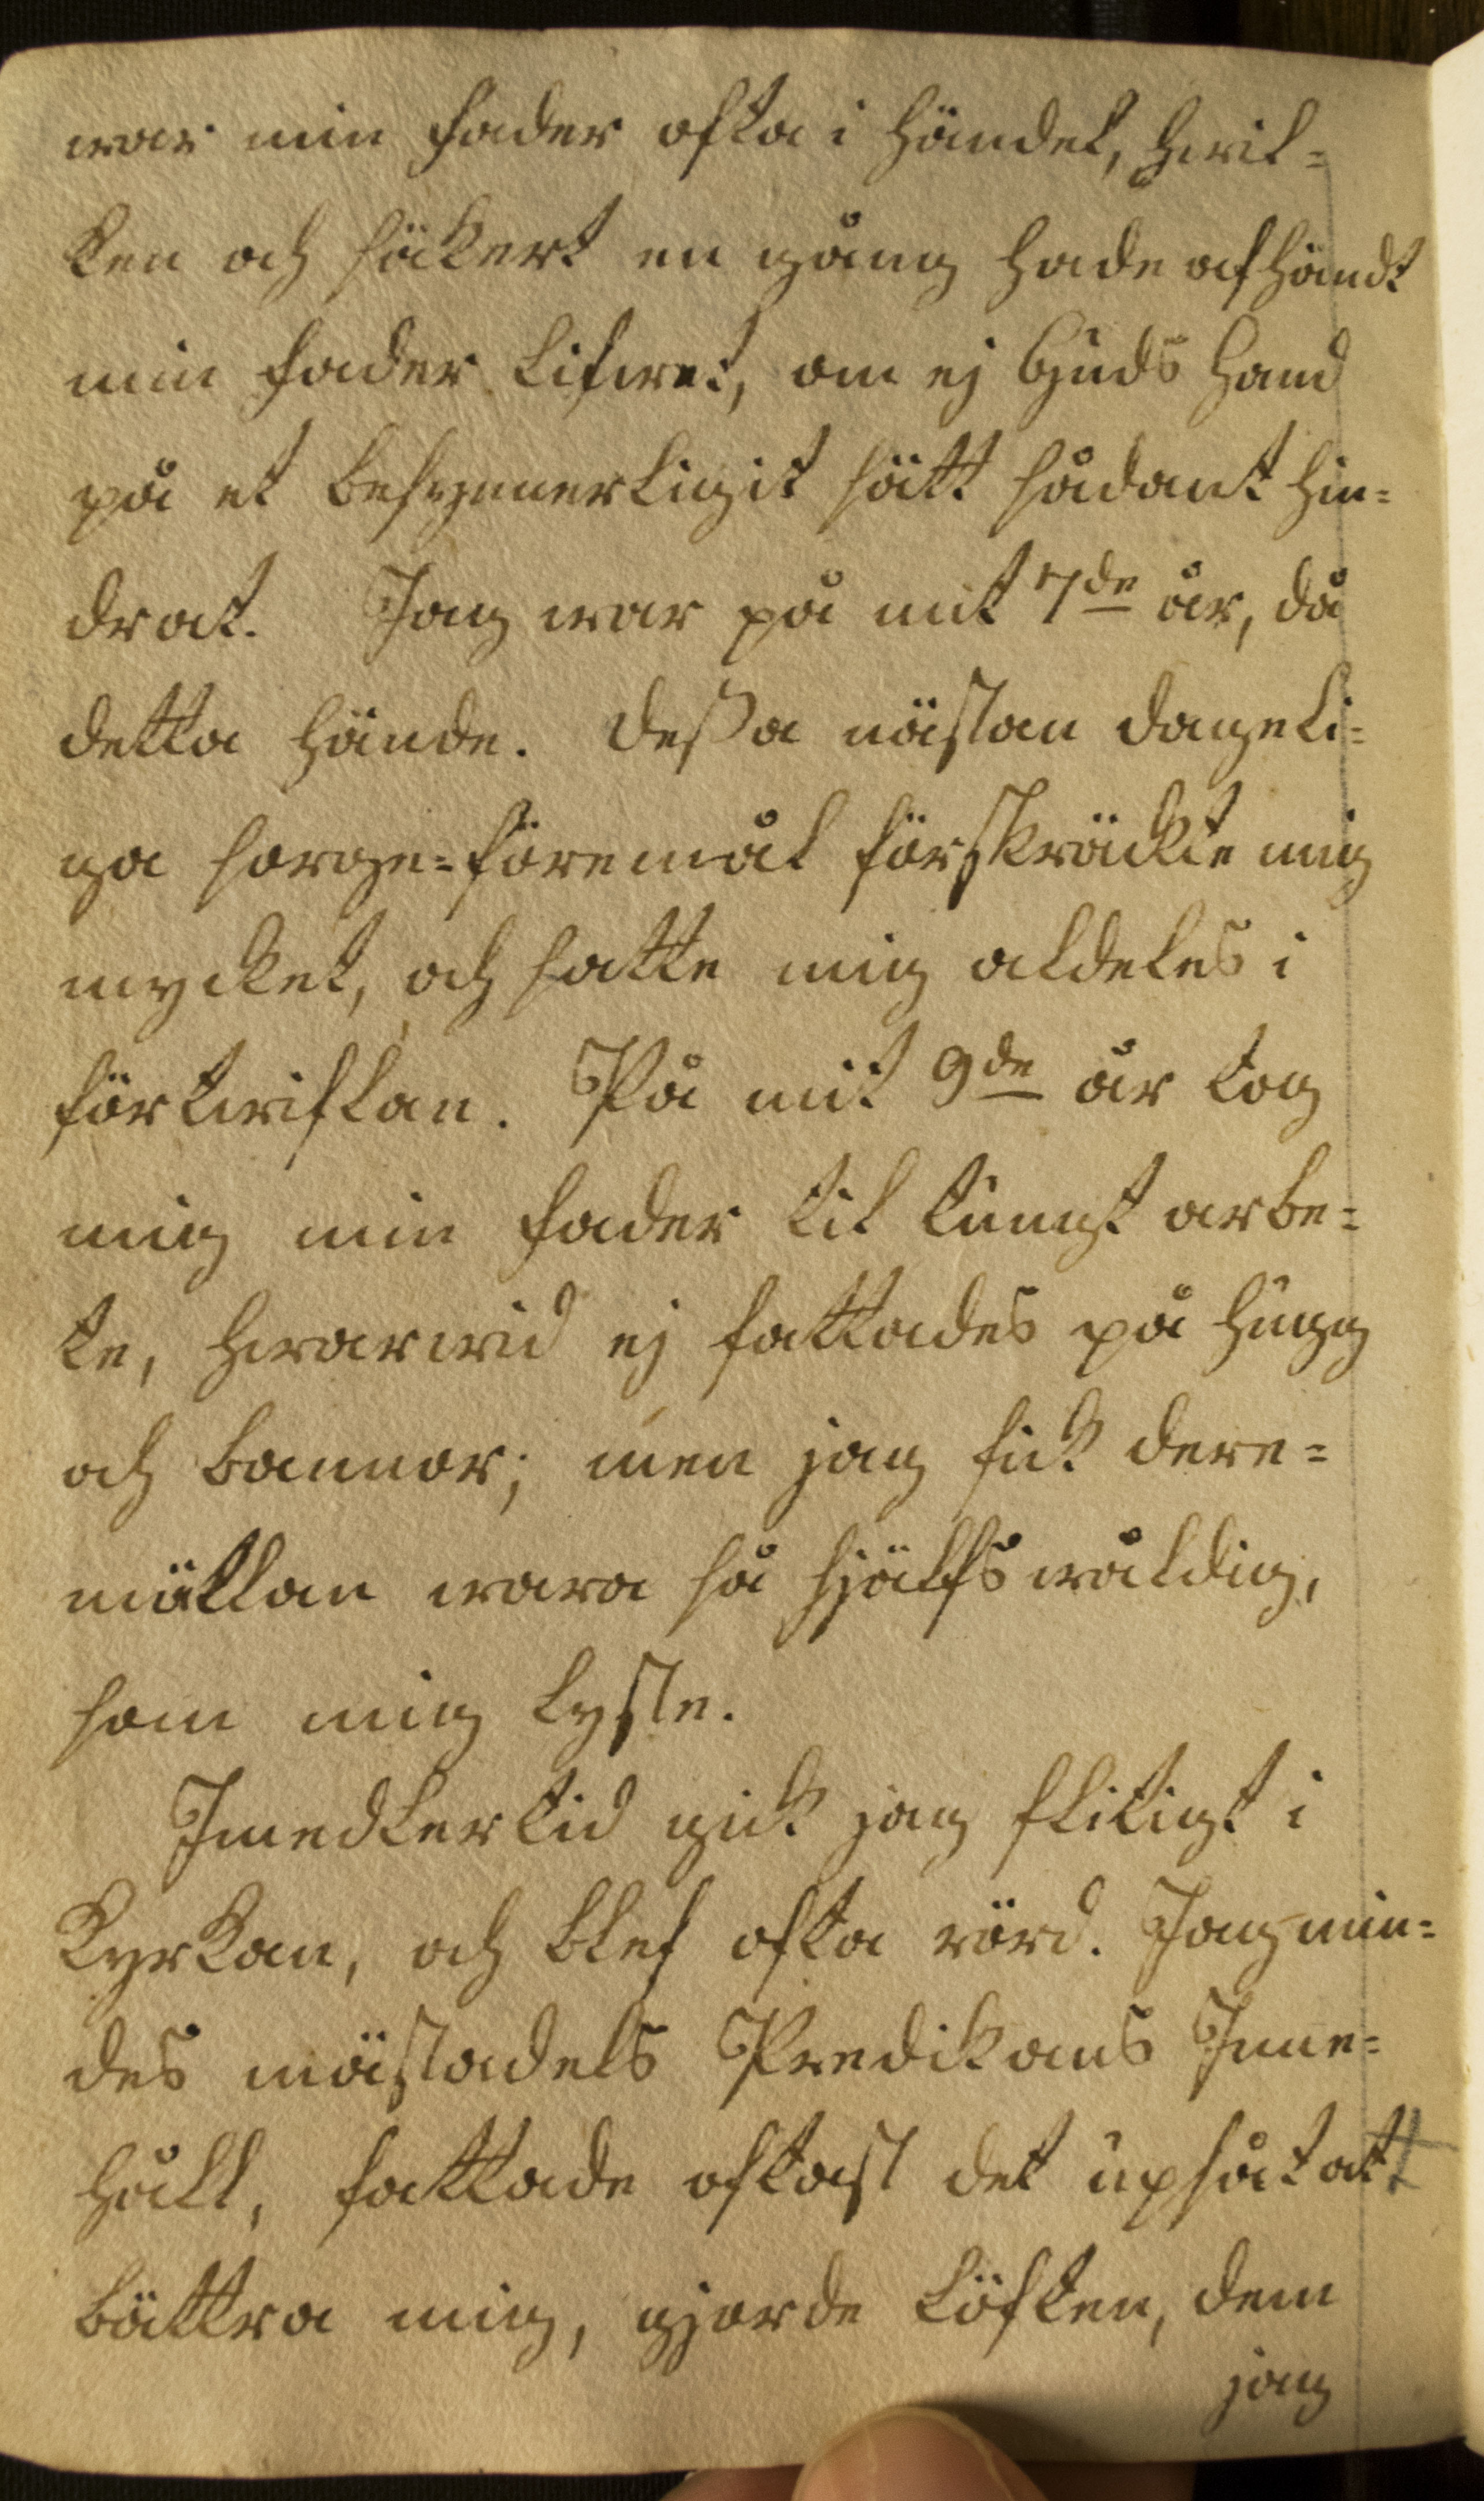 war min fader ofta i händel, hwil=
ken och säkert en gång hade afhändt
min fader lifwet, om ej Guds hand
på et besynnerligit sätt sådant hin=
drat. Jag war på mit 7de år, då
detta hände. Dessa nästan dageli=
ga sorge=föremål förskräckte mig
mycket, och satte mig aldeles i
förtwiflan. På mit 9de år tog
mig min fader til tungt arbe=
te, hwarwid ej fattades på hugg
och bannor; men jag fick dere=
mällan wara så sjelfswåldig,
som mig lyste.
Imedlertid gick jag flitigt i
Kyrkan, och blef ofta rörd. Jag min=
des mästadels Predikans Inne=
håll, fattade oftast det upsåt att
bättra mig, gjorde löften, dem
jag